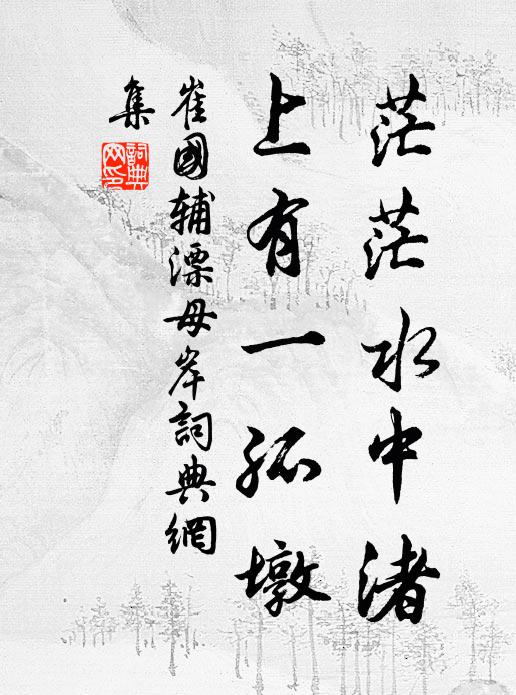 茫茫水中渚
上有一孤墩
崔國輔漂母岸詞典網
集
詞典
网印